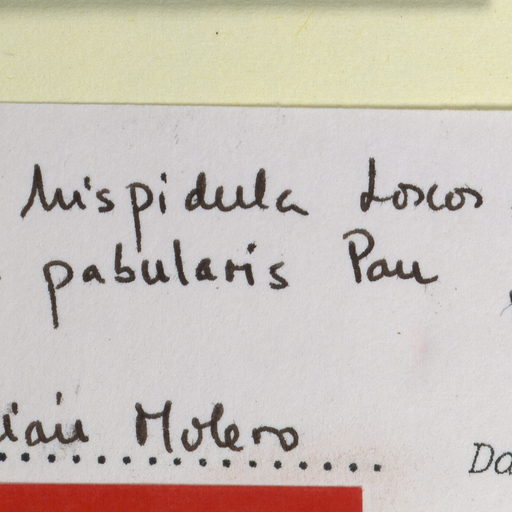 hispidula Loscos
pabularis Pau
Molero
Da